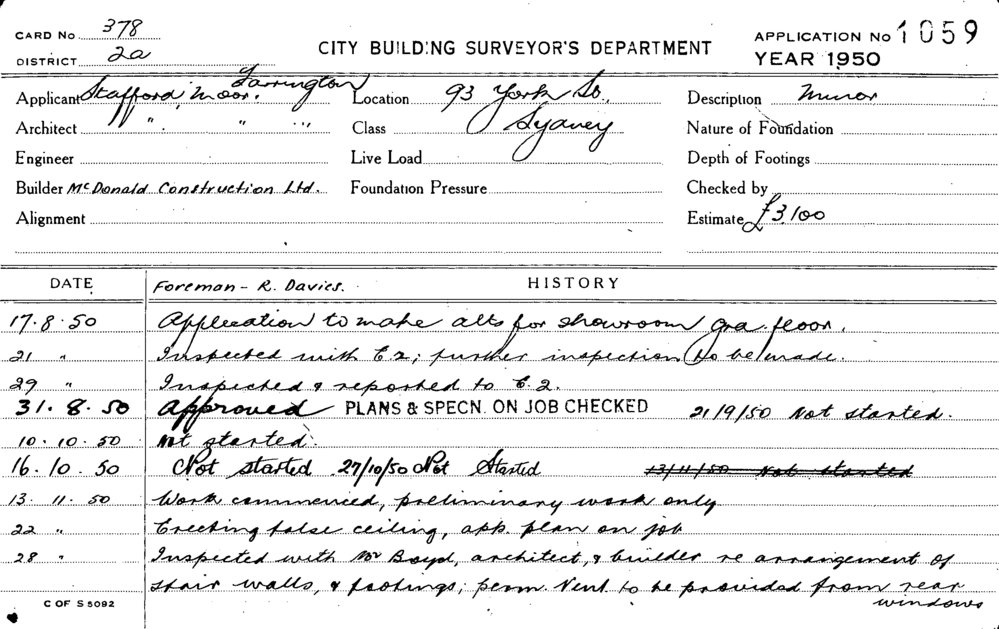 CARD No 378
DISTRICT 2a
CITY BUILDING SURVEYOR'S DEPARTMENT
APPLICATION No 1059
YEAR 1950
Applicant Stafford, Moor, Farrington Location 93 York St. Description Minor
Architect " " " Class Sydney Nature of Foundation
Engineer Live Load Depth of Footings
Builder McDonald Construction Ltd. Foundation Pressure Checked by
Alignment Estimate £3,100
DATE Foreman - R. Davies. HISTORY
17.8.50 Application to make alts for showroom gra. floor.
21 " Inspected with C2; further inspection to be made.
29 " Inspected & reported to C.2.
31.8.50 Approved PLANS & SPECN. ON JOB CHECKED 21/9/50 Not started.
10.10.50 Not started.
16.10.50 Not started 27/10/50 Not Started 13/11/50 Not started
13.11.50 Work commenced, preliminary work only
22 " Erecting false ceiling, app. plan on job
28 " Inspected with Mr Boyd, architect, & builder re arrangement of
stair walls, & footings; perm. Vent. to be provided from rear
windows
C OF S 5092